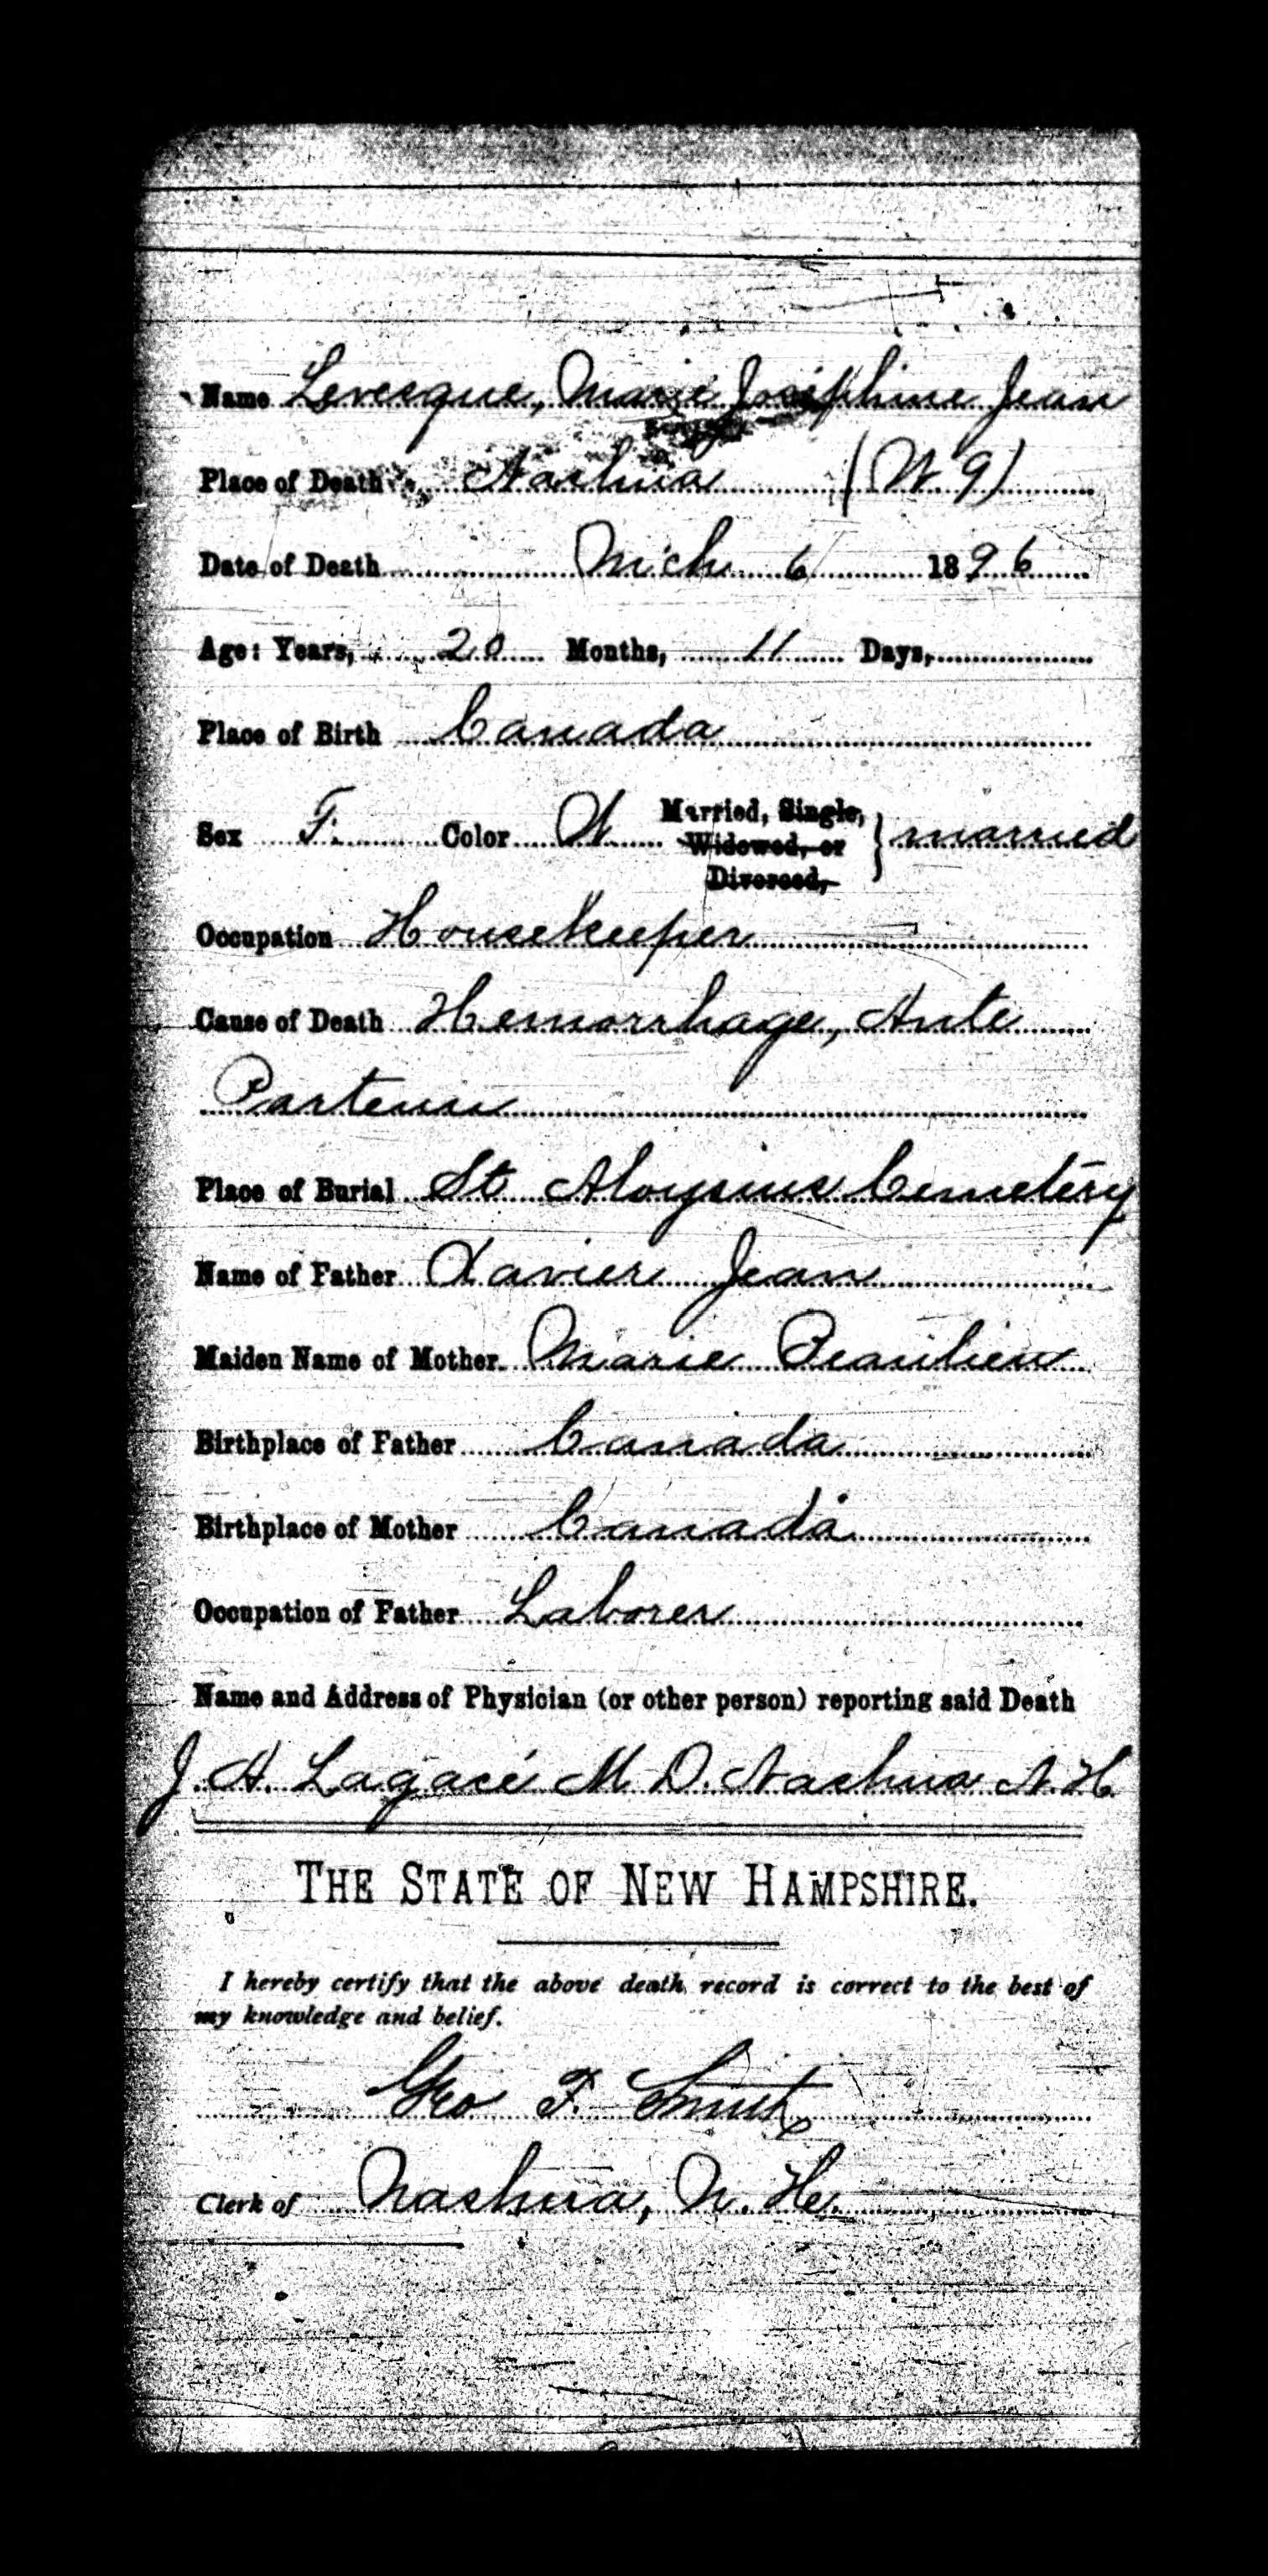 Name Levesque, Marie Josephine Jean
Place of Death Nashua (W 9)
Date of Death Mch 6 1896
Age: Years, 20 Months, 11 Days,
Place of Birth Canada
Sex F. Color W Married, Single, Widowed, or Divorced, married
Occupation Housekeeper
Cause of Death Hemorrhage, Ante
Partem
Place of Burial St Aloysius Cemetery
Name of Father Xavier Jean
Maiden Name of Mother Marie Beaulieu
Birthplace of Father Canada
Birthplace of Mother Canada
Occupation of Father Laborer
Name and Address of Physician (or other person) reporting said Death
J. H. Lagacé M. D. Nashua N. H.
THE STATE OF NEW HAMPSHIRE.
I hereby certify that the above death record is correct to the best of
my knowledge and belief.
Geo F. Smith
Clerk of Nashua, N. H.